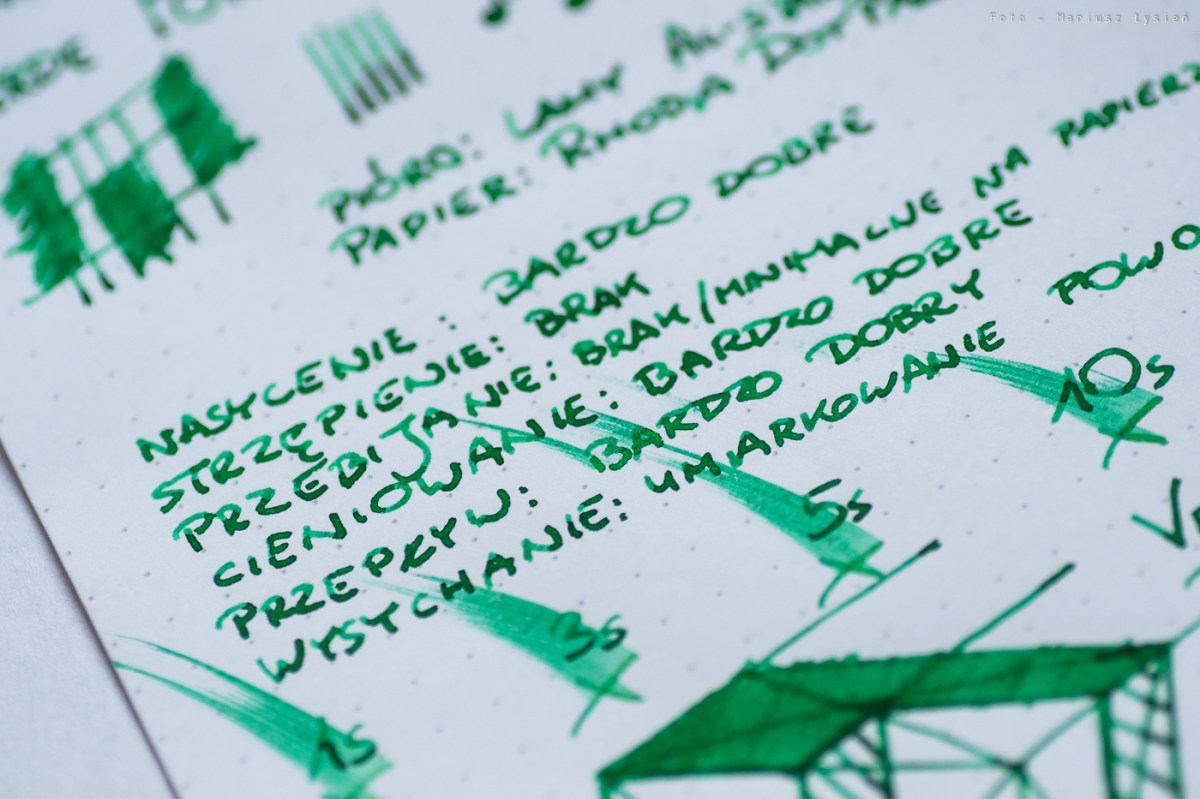 Foto - Mariusz Łysień
PIÓRO: LAMY AL-STAR
PAPIER: RHODIA
NASYCENIE: BARDZO DOBRE
STRZĘPIENIE: BRAK
PRZEBIJANIE: BRAK/MINIMALNE NA
CIENIOWANIE: BARDZO DOBRE
PRZEPŁYW: BARDZO DOBRY
WYSYCHANIE: UMIARKOWANIE
1s
3s
5s
10s